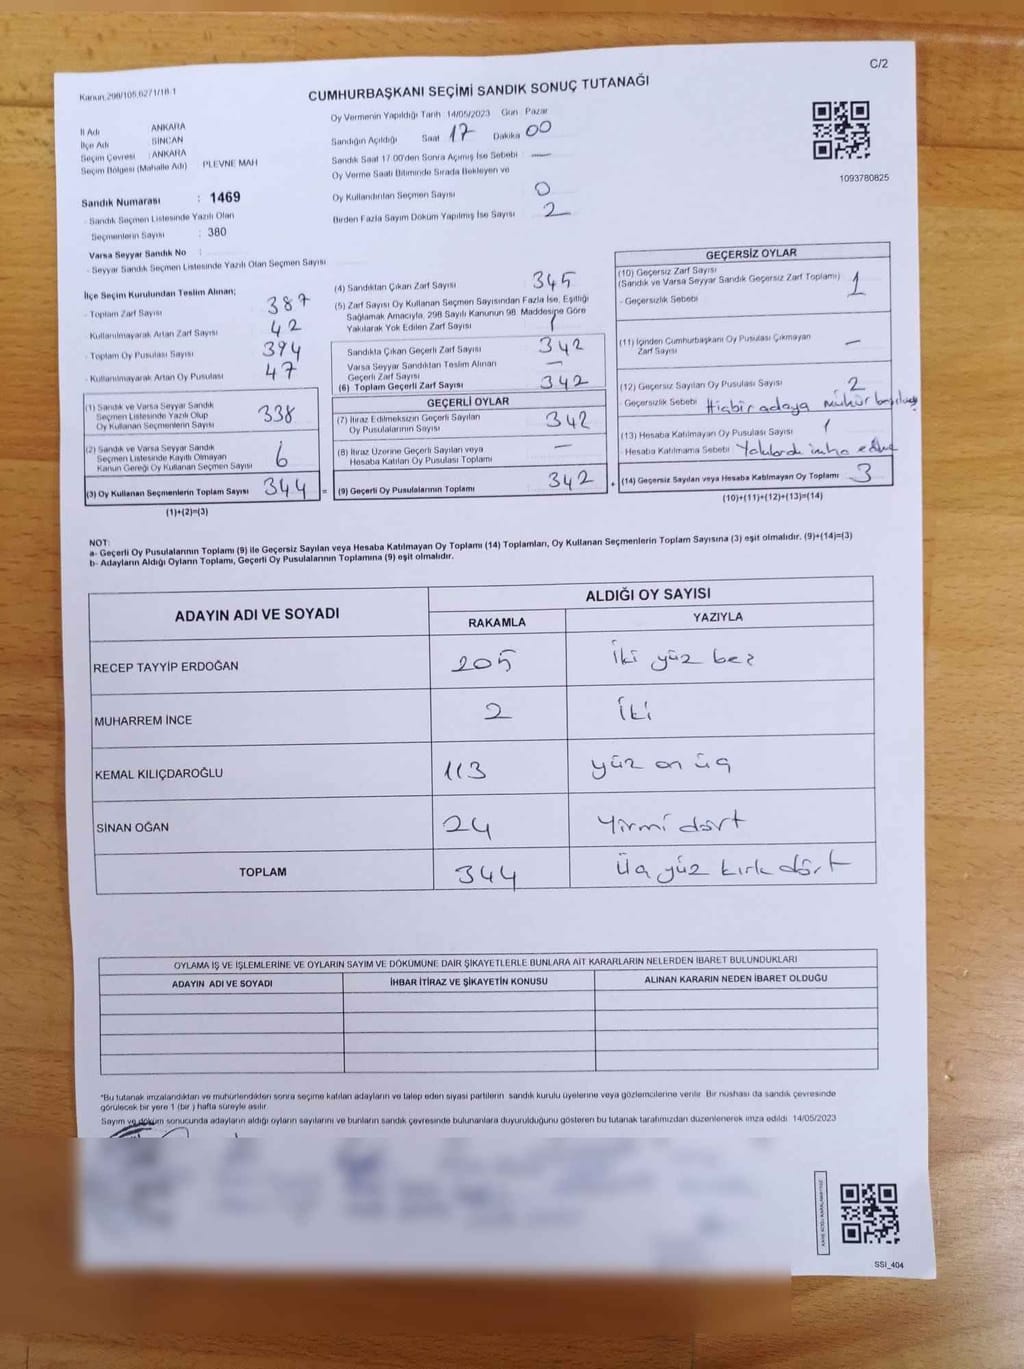 C/2
Kanun 298/105,6271/18-1
CUMHURBAŞKANI SEÇİMİ SANDIK SONUÇ TUTANAĞI
İl Adı ANKARA
İlçe Adı SİNCAN
Seçim Çevresi : ANKARA
Seçim Bölgesi (Mahalle Adı) PLEVNE MAH
Sandık Numarası : 1469
- Sandık Seçmen Listesinde Yazılı Olan
Seçmenlerin Sayısı : 380
Varsa Seyyar Sandık No :
- Seyyar Sandık Seçmen Listesinde Yazılı Olan Seçmen Sayısı
Oy Vermenin Yapıldığı Tarih 14/05/2023 Gün Pazar
Sandığın Açıldığı Saat 17 Dakika 00
Sandık Saat 17.00'den Sonra Açılmış İse Sebebi —
Oy Verme Saati Bitiminde Sırada Bekleyen ve
Oy Kullandırılan Seçmen Sayısı 0
Birden Fazla Sayım Döküm Yapılmış İse Sayısı 2
1093780825
İlçe Seçim Kurulundan Teslim Alınan;
- Toplam Zarf Sayısı 387
Kullanılmayarak Artan Zarf Sayısı 42
- Toplam Oy Pusulası Sayısı 394
- Kullanılmayarak Artan Oy Pusulası 47
(1) Sandık ve Varsa Seyyar Sandık
Seçmen Listesinde Yazılı Olup
Oy Kullanan Seçmenlerin Sayısı 338
(2) Sandık ve Varsa Seyyar Sandık
Seçmen Listesinde Kayıtlı Olmayan
Kanun Gereği Oy Kullanan Seçmen Sayısı 6
(3) Oy Kullanan Seçmenlerin Toplam Sayısı 344 =
(1)+(2)=(3)
(4) Sandıktan Çıkan Zarf Sayısı 345
(5) Zarf Sayısı Oy Kullanan Seçmen Sayısından Fazla İse, Eşitliği
Sağlamak Amacıyla, 298 Sayılı Kanunun 98. Maddesine Göre
Yakılarak Yok Edilen Zarf Sayısı 1
Sandıkta Çıkan Geçerli Zarf Sayısı 342
Varsa Seyyar Sandıktan Teslim Alınan
Geçerli Zarf Sayısı —
(6) Toplam Geçerli Zarf Sayısı 342
GEÇERLİ OYLAR
(7) İtiraz Edilmeksizin Geçerli Sayılan
Oy Pusulalarının Sayısı 342
(8) İtiraz Üzerine Geçerli Sayılan veya
Hesaba Katılan Oy Pusulası Toplamı —
(9) Geçerli Oy Pusulalarının Toplamı 342 +
GEÇERSİZ OYLAR
(10) Geçersiz Zarf Sayısı
(Sandık ve Varsa Seyyar Sandık Geçersiz Zarf Toplamı) 1
- Geçersizlik Sebebi
(11) İçinden Cumhurbaşkanı Oy Pusulası Çıkmayan
Zarf Sayısı —
(12) Geçersiz Sayılan Oy Pusulası Sayısı 2
- Geçersizlik Sebebi Hiçbir adaya mühür
(13) Hesaba Katılmayan Oy Pusulası Sayısı 1
Hesaba Katılmama Sebebi Yakılarak imha edilme
(14) Geçersiz Sayılan veya Hesaba Katılmayan Oy Toplamı 3
(10)+(11)+(12)+(13)=(14)
NOT:
a- Geçerli Oy Pusulalarının Toplamı (9) ile Geçersiz Sayılan veya Hesaba Katılmayan Oy Toplamı (14) Toplamları, Oy Kullanan Seçmenlerin Toplam Sayısına (3) eşit olmalıdır. (9)+(14)=(3)
b- Adayların Aldığı Oyların Toplamı, Geçerli Oy Pusulalarının Toplamına (9) eşit olmalıdır.
ADAYIN ADI VE SOYADI ALDIĞI OY SAYISI
RAKAMLA YAZIYLA
RECEP TAYYİP ERDOĞAN 205 İki yüz beş
MUHARREM İNCE 2 İki
KEMAL KILIÇDAROĞLU 113 yüz on üç
SİNAN OĞAN 24 Yirmi dört
TOPLAM 344 Üç yüz kırk dört
OYLAMA İŞ VE İŞLEMLERİNE VE OYLARIN SAYIM VE DÖKÜMÜNE DAİR ŞİKAYETLERLE BUNLARA AİT KARARLARIN NELERDEN İBARET BULUNDUKLARI
ADAYIN ADI VE SOYADI İHBAR İTİRAZ VE ŞİKAYETİN KONUSU ALINAN KARARIN NEDEN İBARET OLDUĞU
*Bu tutanak imzalandıktan ve mühürlendikten sonra seçime katılan adayların ve talep eden siyasi partilerin sandık kurulu üyelerine veya gözlemcilerine verilir. Bir nüshası da sandık çevresinde
görülecek bir yere 1 (bir ) hafta süreyle asılır.
Sayım ve döküm sonucunda adayların aldığı oyların sayılarını ve bunların sandık çevresinde bulunanlara duyurulduğunu gösteren bu tutanak tarafımızdan düzenlenerek imza edildi. 14/05/2023
SSI_404